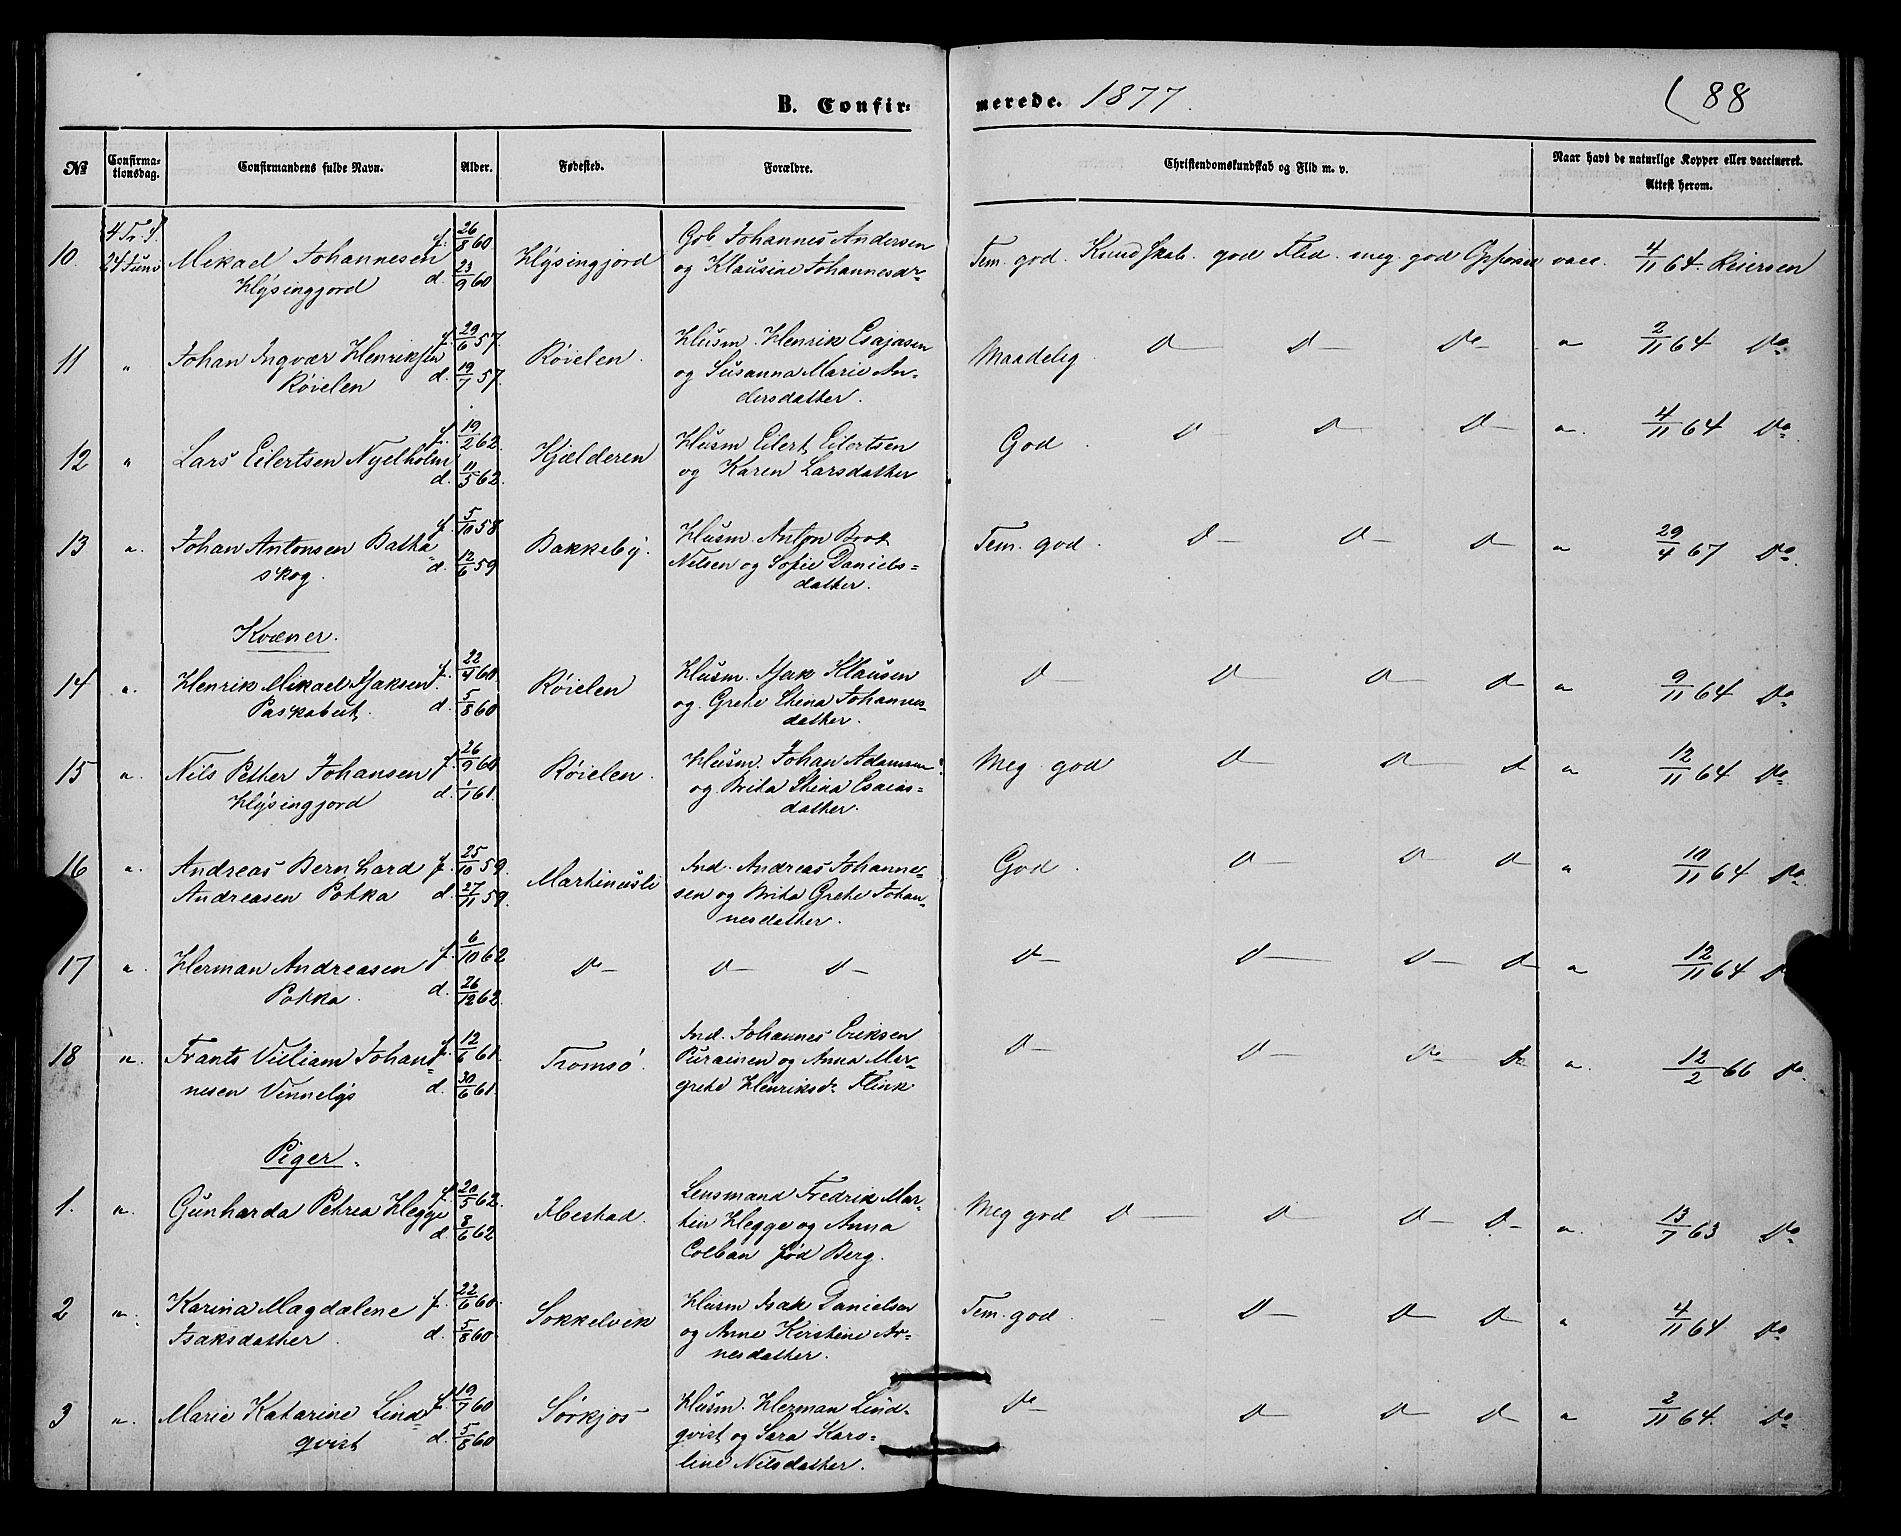 B. Confir-
merede. 1877.
88
№
Confirma-
tionsdag.
Confirmandens fulde Navn.
Alder.
Fødested.
Forældre.
Christendomskundskab og Flid m. v.
Naar havt de naturlige Kopper eller vaccineret.
Attest herom.
10.
4 Tr. S.
24 Juni
Mikael Johannesen
Hysingjord
f. 26/8 60
d. 23/9 60
Hysingjord
Gob Johannes Andersen
og Klausine Johannesdr
Tem. god. Kundskab. god Flid. meg. god Opførsel
vacc. 4/11 64. Reiersen
11 "
Johan Ingvær Henriksen
Røielen
f. 29/6 57.
d. 19/7 57.
Røielen
Husm. Henrik Esajasen
og Susanna Marie An-
dersdatter.
Maadelig. D- D- Do-
" 2/11 64 Do
12 "
Lars Eilertsen Nyelholm
f. 19/2 62.
d. 11/5 62.
Kjælderen
Husm Eilert Eilertsen
og Karen Larsdatter
God D- D- D-
" 4/11 64 Do
13 "
Johan Antonsen Balka
skog.
f. 5/10 58
d. 12/6 59
Bakkeby.
Husm. Anton Brox
Nilsen og Sofie Daniels=
datter.
Tem. god. D- D- D-
" 29/4 67 Do
Kvæner.
14 "
Henrik Mikael Isaksen
Paskabeit.
f. 22/4 60
d. 5/8 60
Røielen
Husm. Isak Klausen
og Grete Stina Johannes-
datter.
D- D- D- D
" 9/11 64 Do
15 "
Nils Petter Johansen
Hysingjord
f. 26/9 60
d. 1/1 61.
Røielen.
Husm. Johan Adamsen
og Brita Stina Esaias=
datter.
Meg god D- D- D
" 12/11 64 Do
16 "
Andreas Bernhard
Andreasen Pokka
f. 25/10 59.
d. 27/11 59.
Martinusli
Ind. Andreas Johanne-
sen og Brita Grete Johan-
nesdatter.
God. D- D- D
" 10/11 64 Do
17 "
Herman Andreasen
Pokka.
f. 6/10 62
d. 26/12 62.
Do-
D- D-
D- D- D- D
" 12/11 64 D
18 "
Frants Villiam Johan-
nesen Vennelys
f. 12/6 61.
d. 30/6 61.
Tromsø
Ind. Johannes Eriksen
Purainen og Anna Mar-
grete Henriksd. Flink
D- D- Do- D
" 12/2 66 Do
Piger.
1. "
Gunharda Petrea Hegge
f. 20/5 62.
d. 8/6 62
Ibestad.
Lensmand Fredrik Mar-
tin Hegge og Anna
Colban fød Berg.
Meg god D- D- D- D-
" 13/7 63 Do
2 "
Karina Magdalene
Isaksdatter.
f. 22/6 60.
d. 5/8 60
Sokkelvik
Husm Isak Danielsen
og Anne Kirstine Ar-
nesdatter.
Tem. god. D- D- D-
" 4/11 64. Do
3 "
Marie Katarine Lind=
qvist
f. 19/7 60
d. 5/8 60
Sørkjos
Husm. Herman Lind-
qvist og Sara Karo-
line Nilsdatter.
Do- D- D- D-
" 2/11 64. Do